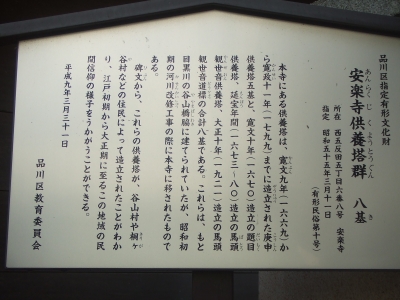 品川区指定有形文化財
安楽寺供養塔群 八基
あんらくじくようとうぐん
はっき
所在 西五反田五丁目六番八号 安楽寺
指定 昭和五十五年三月十一日
(有形民俗第十号)
本寺にある供養塔は、寛文九年(一六六九)か
ら寛政十一年(一七九九)までに造立された庚申
供養塔五基と、寛文十年(一六七〇)造立の題目
供養塔、延宝年間(一六七三~八〇)造立の馬頭
観世音供養塔、大正十年(一九二一)造立の馬頭
観世音道標の合計八基である。これらは、もと
目黒川の谷山橋脇に建てられていたが、昭和初
期の河川改修工事の際に本寺に移されたもので
ある。
碑文から、これらの供養塔が、谷山村や桐ヶ
谷村などの住民によって造立されたことがわか
り、江戸初期から大正期に至るこの地域の民
間信仰の様子をうかがうことができる。
平成九年三月三十一日
品川区教育委員会